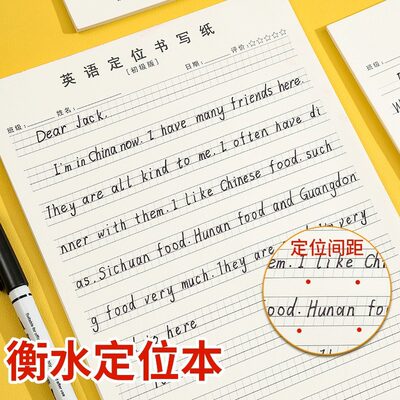 英语定位书写纸
[初级版]
班级: 姓名: 日期: 评价:☆☆☆☆☆
Dear Jack.
I'm in China now. I have many friends here.
They are all kind to me. I often have di
nner with them. I like Chinese food. such
as. Sichuan food. Hunan food and Guangdon
g food very much. They are very
here
定位间距
em. I like Chi
ood. Hunan fo
They are
衡水定位本